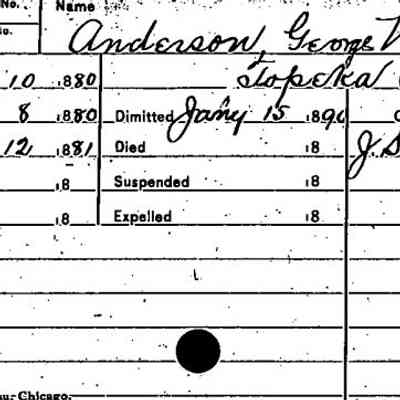 No. Name
Anderson, George
No. Topeka
10 1880
8 1880 Dimitted Jany 15 1890
12 1881 Died 18
18 Suspended 18
18 Expelled 18
Chicago.